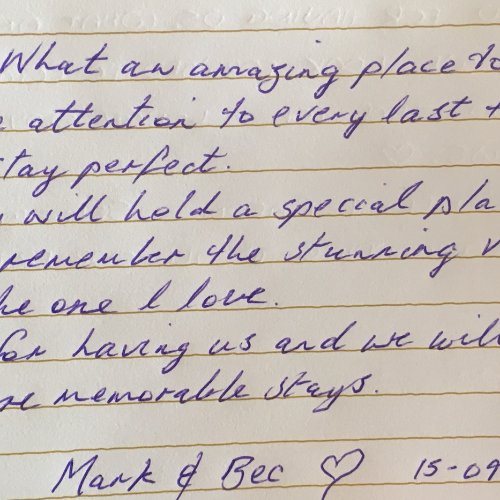 What an amazing place to
attention to every last
stay perfect.
will hold a special pla
remember the stunning v
he one I love.
for having us and we will
re memorable stays.
Mark & Bec ♡ 15-09